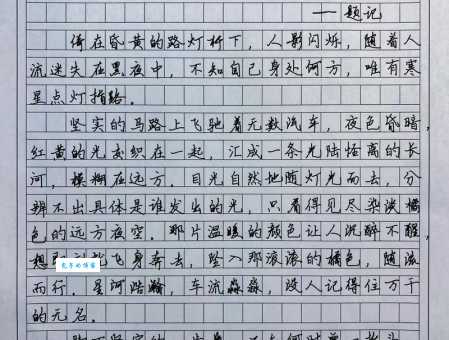 ——题记
倚在昏黄的路灯杆下，人影闪烁，随着人
流迷失在黑夜中，不知自己身处何方，唯有寒
星点灯指路。
坚实的马路上飞驰着无数流车，夜色昏暗，
红黄的光交织在一起，汇成一条光陆怪离的长
河，模糊在远方。目光自然地随灯光而去，分
辨不出具体是谁发出的光，只看得见尽染橘
色的远方夜空。那片温暖的颜色让人沉醉不醒，
飞身奔去，坠入那滚滚的橘色，随流
而行。星河浩瀚，车流淼淼，没人记得住万千
的无名。